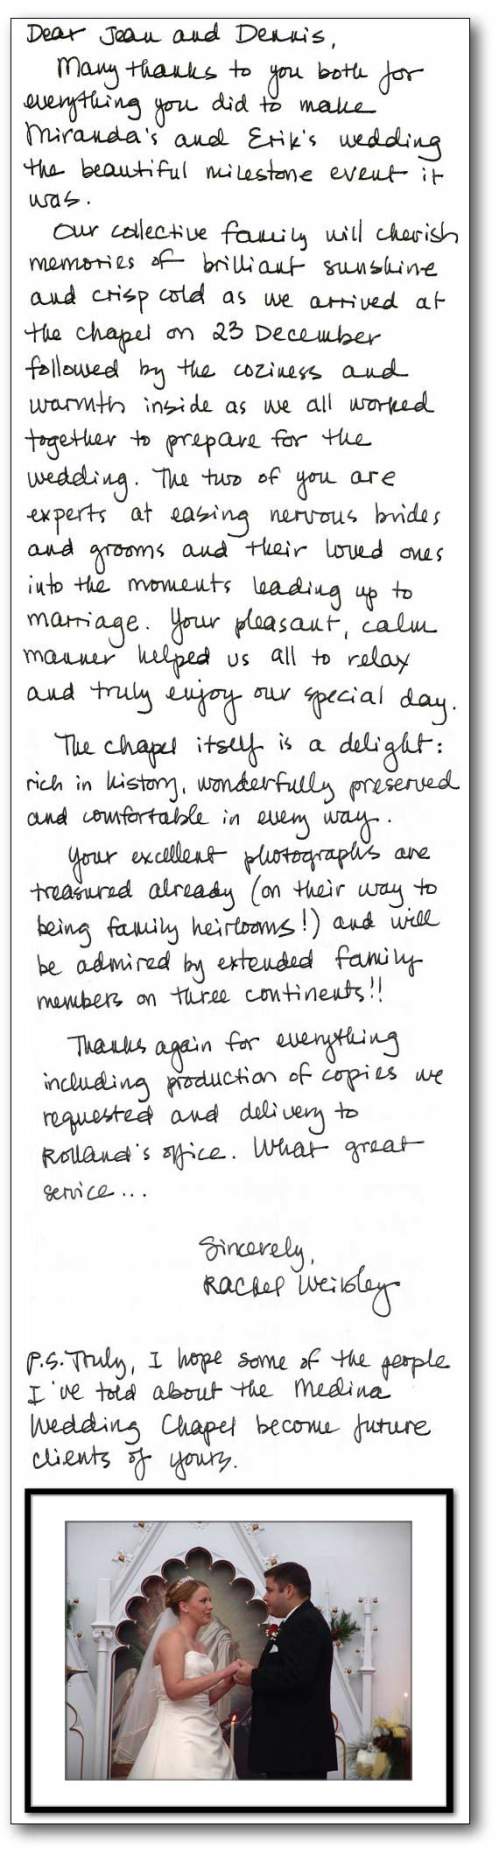 Dear Jean and Dennis,
Many thanks to you both for
everything you did to make
Miranda's and Erik's wedding
the beautiful milestone event it
was.
Our collective family will cherish
memories of brilliant sunshine
and crisp cold as we arrived at
the chapel on 23 December
followed by the coziness and
warmth inside as we all worked
together to prepare for the
wedding. The two of you are
experts at easing nervous brides
and grooms and their loved ones
into the moments leading up to
marriage. Your pleasant, calm
manner helped us all to relax
and truly enjoy our special day.
The chapel itself is a delight:
rich in history, wonderfully preserved
and comfortable in every way.
Your excellent photographs are
treasured already (on their way to
being family heirlooms!) and will
be admired by extended family
members on three continents!!
Thanks again for everything
including production of copies we
requested and delivery to
Rolland's office. What great
service...
Sincerely,
Rachel
P.S. Truly, I hope some of the people
I've told about the Medina
Wedding Chapel become future
clients of yours.